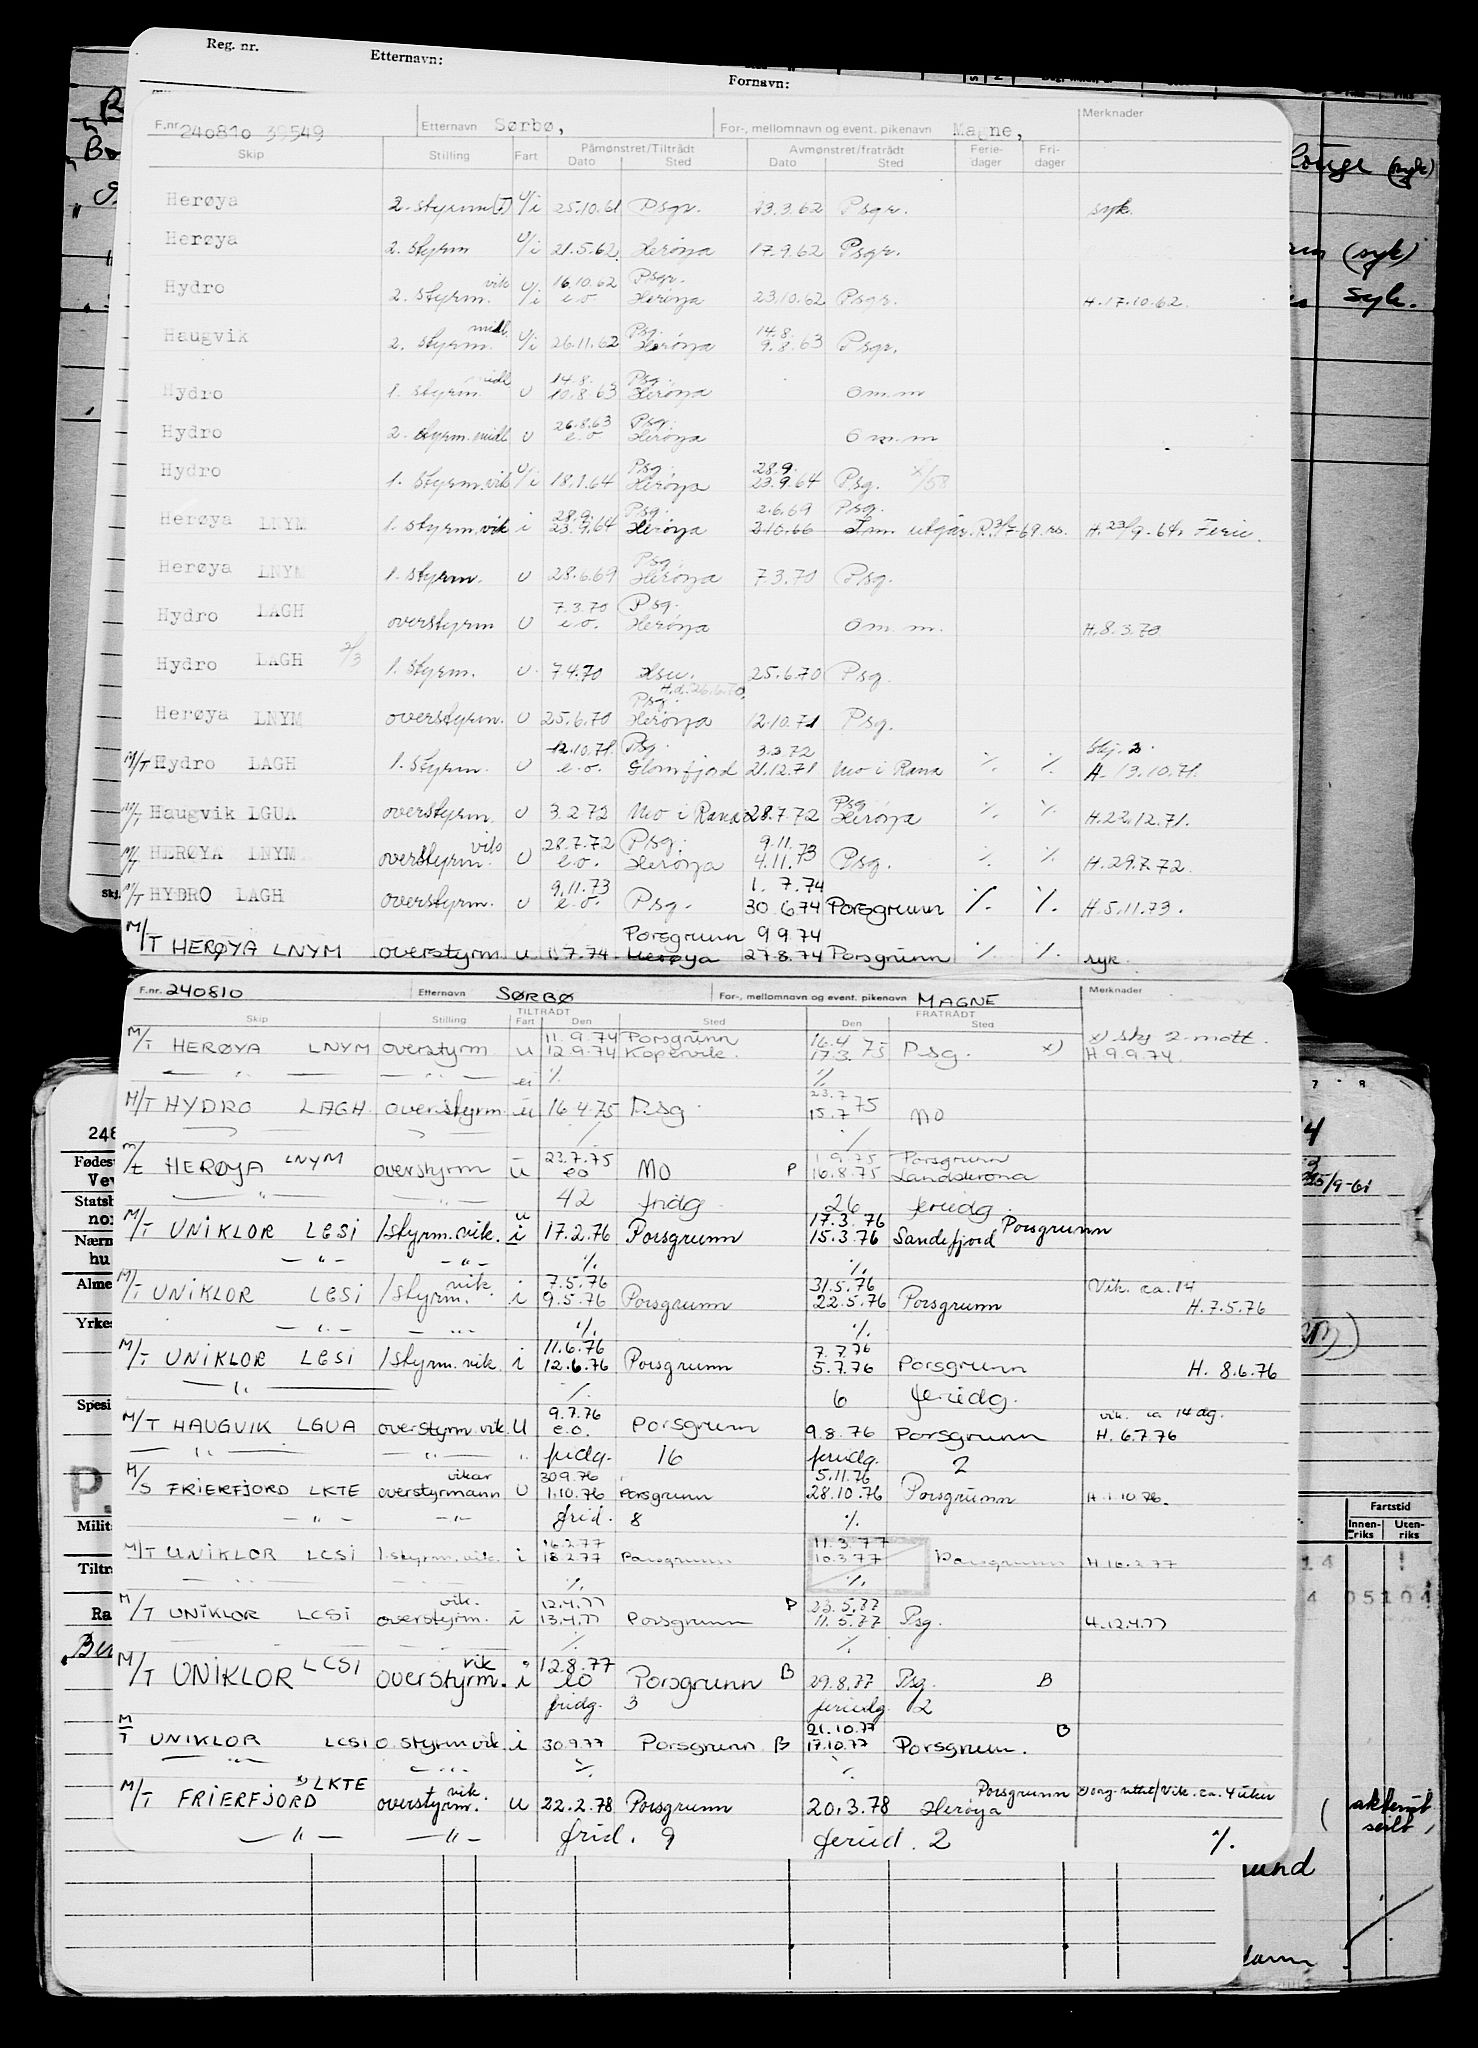 Reg. nr. Etternavn: Fornavn:
F.nr. 240810 39549 Etternavn Sørbø, For-, mellomnavn og event. pikenavn Magne, Merknader
Skip Stilling Fart Påmønstret/Tiltrådt Dato Sted Avmønstret/fratrådt Dato Sted Ferie-dager Fri-dager
Herøya 2. styrm U/i 25.10.61 Psgr. 23.3.62 Psgr. syk.
Herøya 2. styrm U/i 21.5.62 Herøya 17.9.62 Psgr.
16.10.62 Psgr.
Hydro 2. styrm. vik U/i e.o. Herøya 23.10.62 Psgr. H.17.10.62.
midl. Psg. 14.8.
Haugvik 2. styrm. U/i 26.11.62 Herøya 9.8.63 Psgr.
midl 14.8. Psg.
Hydro 1. styrm. U 10.8.63 Herøya Om.m
26.8.63 Psg.
Hydro 2. styrm. midl U e.o Herøya Om.m
Psg. 28.9.
Hydro 1. styrm. vik U/i 18.1.64 Herøya 23.9.64 Psg. x/58
28.9. Psg. 2.6.69 Psg.
Herøya LNYM 1. styrm. vik i 23.9.64 Herøya 2.10.66 utgår. H.23/9-64. Ferie.
Psg.
Herøya LNYM 1. styrm. U 28.6.69 Herøya 7.3.70 Psg.
7.3.70 Psg.
Hydro LAGH overstyrm U e.o. Herøya Om.m. H.8.3.70
Hydro LAGH 2/3 1. styrm. U 7.4.70 25.6.70 Psg.
H.d. 26.6.70.
Psg.
Herøya LNYM overstyrm. U 25.6.70 Herøya 12.10.71 Psg.
12.10.71. Psg. 3.2.72
M/T Hydro LAGH 1. styrm. U e.o. Glomfjord 21.12.71 Mo i Rana ./. ./. H. 13.10.71.
Psg
M/T Haugvik LGUA overstyrm. U 3.2.72 Mo i Rana 28.7.72 Herøya ./. ./. H.22.12.71.
28.7.72 Psg. 9.11.
M/T HERØYA LNYM overstyrm. vik U e.o. Herøya 4.11.73 Psg. ./. ./. H.29.7.72.
9.11.73 1. 7.74
M/T HYDRO LAGH overstyrm. U e.o. Psg. 30.6.74 Porsgrunn ./. ./. H.5.11.73.
Porsgrunn 9.9.74
M/T HERØYA LNYM overstyrm. u 1.7.74 Herøya 27.8.74 Porsgrunn ./. ./. syk
F.nr. 240810 Etternavn SØRBØ For-, mellomnavn og event. pikenavn MAGNE Merknader
Skip Stilling TILTRÅDT Fart Den Sted FRATRÅDT Den Sted
11.9.74 Porsgrunn 16.4 x) skj 2 mott.
M/T HERØYA LNYM overstyrm u 12.9.74 Kopervik. 17.3.75 Psg. x) H.9.9.74.
— " — — " — ei ./. ./.
23.7
M/T HYDRO LAGH overstyrm. u 16.4.75 Psg. 15.7.75 MO
./. ./.
23.7.75 1.9.75 Porsgrunn
M/T HERØYA LNYM overstyrm u eo MO P 16.8.75 Landskrona
— " — — " — 42 fridg 26 feriedg.
u 17.3.76 Porsgrunn
M/T UNIKLOR LCSI 1styrm. vik. i 17.2.76 Porsgrunn 15.3.76 Sandefjord
— " — — " — ./. ./.
vik. 7.5.76 31.5.76 Vik. ca. 14
M/T UNIKLOR LCSI 1styrm. i 9.5.76 Porsgrunn 22.5.76 Porsgrunn H.7.5.76
— " — — " — ./. ./.
11.6.76 7.7.76
M/T UNIKLOR LCSI 1styrm. vik. i 12.6.76 Porsgrunn 5.7.76 Porsgrunn H. 8.6.76
— " — ./. 6 feriedg.
9.7.76 vik. ca 14 dg.
M/T HAUGVIK LGUA overstyrm. vik. U e.o. Porsgrunn 9.8.76 Porsgrunn H. 6.7.76
— " — " " fridg. 16 feriedg. 2
vikar 30.9.76 5.11.76
M/S FRIERFJORD LKTE overstyrmann U 1.10.76 Porsgrunn 28.10.76 Porsgrunn H.1.10.76.
— " — — " — frid. 8 ./.
16.2.77 11.3.77
M/T UNIKLOR LCSI 1.styrm. vik. i 18.2.77 Porsgrunn 10.3.77 Porsgrunn H.16.2.77
./. ./.
vik. 12.4.77 23.5.77
M/T UNIKLOR LCSI overstyrm. i 13.4.77 Porsgrunn P 11.5.77 Psg. H.12.4.77
./. ./.
vik 12.8.77
M/T UNIKLOR LCSI overstyrm. i eo Porsgrunn B 29.8.77 Psg. B
fridg. 3 feriedg. 2
21.10.77 B
M/T UNIKLOR LCSI o.styrm vik. i 30.9.77 Porsgrunn B 17.10.77 Porsgrunn.
— " — — " — ./. ./.
x) LKTE vik. Porsgrunn Vik. ca. 4 uker
M/T FRIERFJORD overstyrm. u 22.2.78 Porsgrunn 20.3.78 Herøya
— " — — " — frid. 9 feried. 2 ./.
(syk)
(syk)
Syk.
Skj.
248
Fødes
Ve
Stats
no
Nærm
hu
Alme
Yrke
Spesi
P.
Milit
Tiltr
Ra
25/9-61
Fartstid
Innen-riks Uten-riks
14
4 05104
aktern
seilt